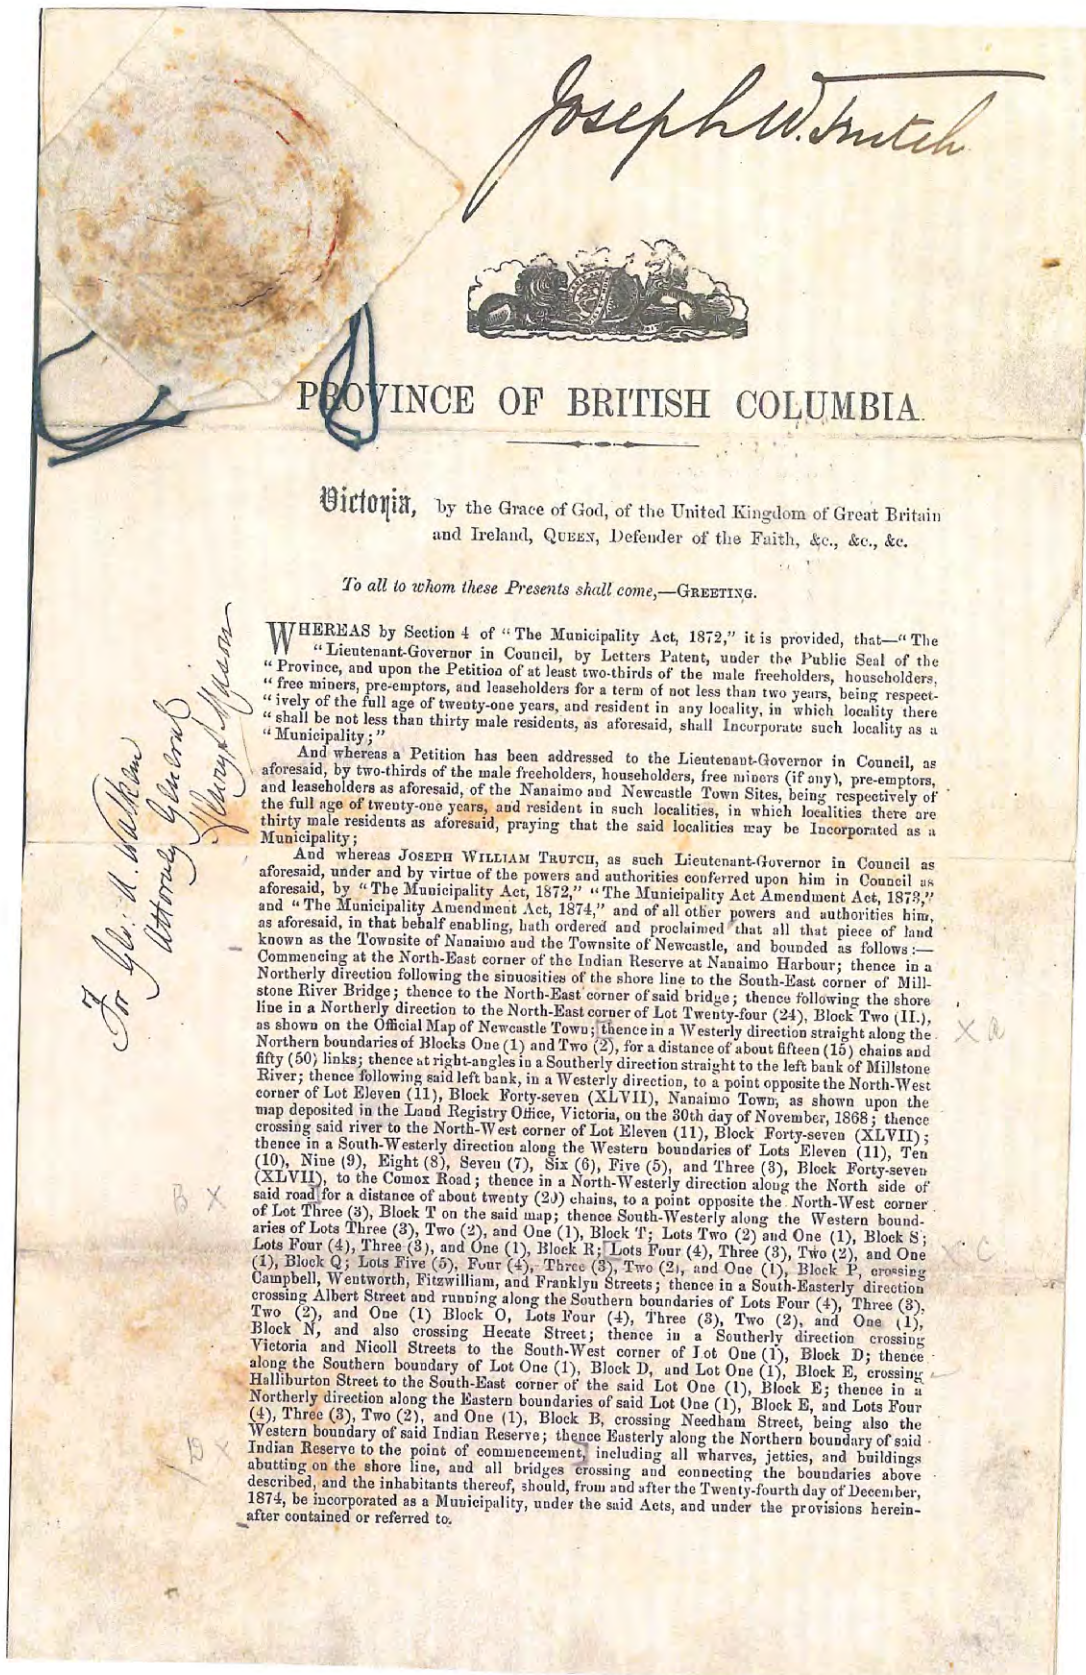 Joseph W. Trutch
PROVINCE OF BRITISH COLUMBIA.
Victoria, by the Grace of God, of the United Kingdom of Great Britain
and Ireland, QUEEN, Defender of the Faith, &c., &c., &c.
To all to whom these Presents shall come,—GREETING.
WHEREAS by Section 4 of "The Municipality Act, 1872," it is provided, that—"The
"Lieutenant-Governor in Council, by Letters Patent, under the Public Seal of the
"Province, and upon the Petition of at least two-thirds of the male freeholders, householders,
"free miners, pre-emptors, and leaseholders for a term of not less than two years, being respect-
"ively of the full age of twenty-one years, and resident in any locality, in which locality there
"shall be not less than thirty male residents, as aforesaid, shall Incorporate such locality as a
"Municipality;"
And whereas a Petition has been addressed to the Lieutenant-Governor in Council, as
aforesaid, by two-thirds of the male freeholders, householders, free miners (if any), pre-emptors,
and leaseholders as aforesaid, of the Nanaimo and Newcastle Town Sites, being respectively of
the full age of twenty-one years, and resident in such localities, in which localities there are
thirty male residents as aforesaid, praying that the said localities may be Incorporated as a
Municipality;
And whereas JOSEPH WILLIAM TRUTCH, as such Lieutenant-Governor in Council as
aforesaid, under and by virtue of the powers and authorities conferred upon him in Council as
aforesaid, by "The Municipality Act, 1872," "The Municipality Act Amendment Act, 1873,"
and "The Municipality Amendment Act, 1874," and of all other powers and authorities him,
as aforesaid, in that behalf enabling, hath ordered and proclaimed that all that piece of land
known as the Townsite of Nanaimo and the Townsite of Newcastle, and bounded as follows:—
Commencing at the North-East corner of the Indian Reserve at Nanaimo Harbour; thence in a
Northerly direction following the sinuosities of the shore line to the South-East corner of Mill-
stone River Bridge; thence to the North-East corner of said bridge; thence following the shore
line in a Northerly direction to the North-East corner of Lot Twenty-four (24), Block Two (II.),
as shown on the Official Map of Newcastle Town; [thence in a Westerly direction straight along the
Northern boundaries of Blocks One (1) and Two (2), for a distance of about fifteen (15) chains and
fifty (50) links; thence at right-angles in a Southerly direction straight to the left bank of Millstone
River; thence following said left bank, in a Westerly direction, to a point opposite the North-West
corner of Lot Eleven (11), Block Forty-seven (XLVII), Nanaimo Town, as shown upon the
map deposited in the Land Registry Office, Victoria, on the 30th day of November, 1868; thence
crossing said river to the North-West corner of Lot Eleven (11), Block Forty-seven (XLVII);
thence in a South-Westerly direction along the Western boundaries of Lots Eleven (11), Ten
(10), Nine (9), Eight (8), Seven (7), Six (6), Five (5), and Three (3), Block Forty-seven
(XLVII), to the Comox Road; thence in a North-Westerly direction along the North side of
said road] for a distance of about twenty (20) chains, to a point opposite the North-West corner
of Lot Three (3), Block T on the said map; thence South-Westerly along the Western bound-
aries of Lots Three (3), Two (2), and One (1), Block T; Lots Two (2) and One (1), Block S;
Lots Four (4), Three (3), and One (1), Block R; [Lots Four (4), Three (3), Two (2), and One
(1), Block Q; Lots Five (5), Four (4), Three (3), Two (2), and One (1), Block P, crossing
Campbell, Wentworth, Fitzwilliam, and Franklyn Streets; thence in a South-Easterly direction
crossing Albert Street and running along the Southern boundaries of Lots Four (4), Three (3),
Two (2), and One (1) Block O, Lots Four (4), Three (3), Two (2), and One (1),
Block N, and also crossing Hecate Street; thence in a Southerly direction crossing
Victoria and Nicoll Streets to the South-West corner of Lot One (1), Block D; thence
along the Southern boundary of Lot One (1), Block D, and Lot One (1), Block E, crossing
Halliburton Street to the South-East corner of the said Lot One (1), Block E; thence in a
Northerly direction along the Eastern boundaries of said Lot One (1), Block E, and Lots Four
(4), Three (3), Two (2), and One (1), Block B, crossing Needham Street, being also the
Western boundary of said Indian Reserve; thence Easterly along the Northern boundary of said
Indian Reserve to the point of commencement,] including all wharves, jetties, and buildings
abutting on the shore line, and all bridges crossing and connecting the boundaries above
described, and the inhabitants thereof, should, from and after the Twenty-fourth day of December,
1874, be incorporated as a Municipality, under the said Acts, and under the provisions herein-
after contained or referred to.
For Geo: A. Walkem
Attorney General
Henry S. Mason
X a
B X
X C